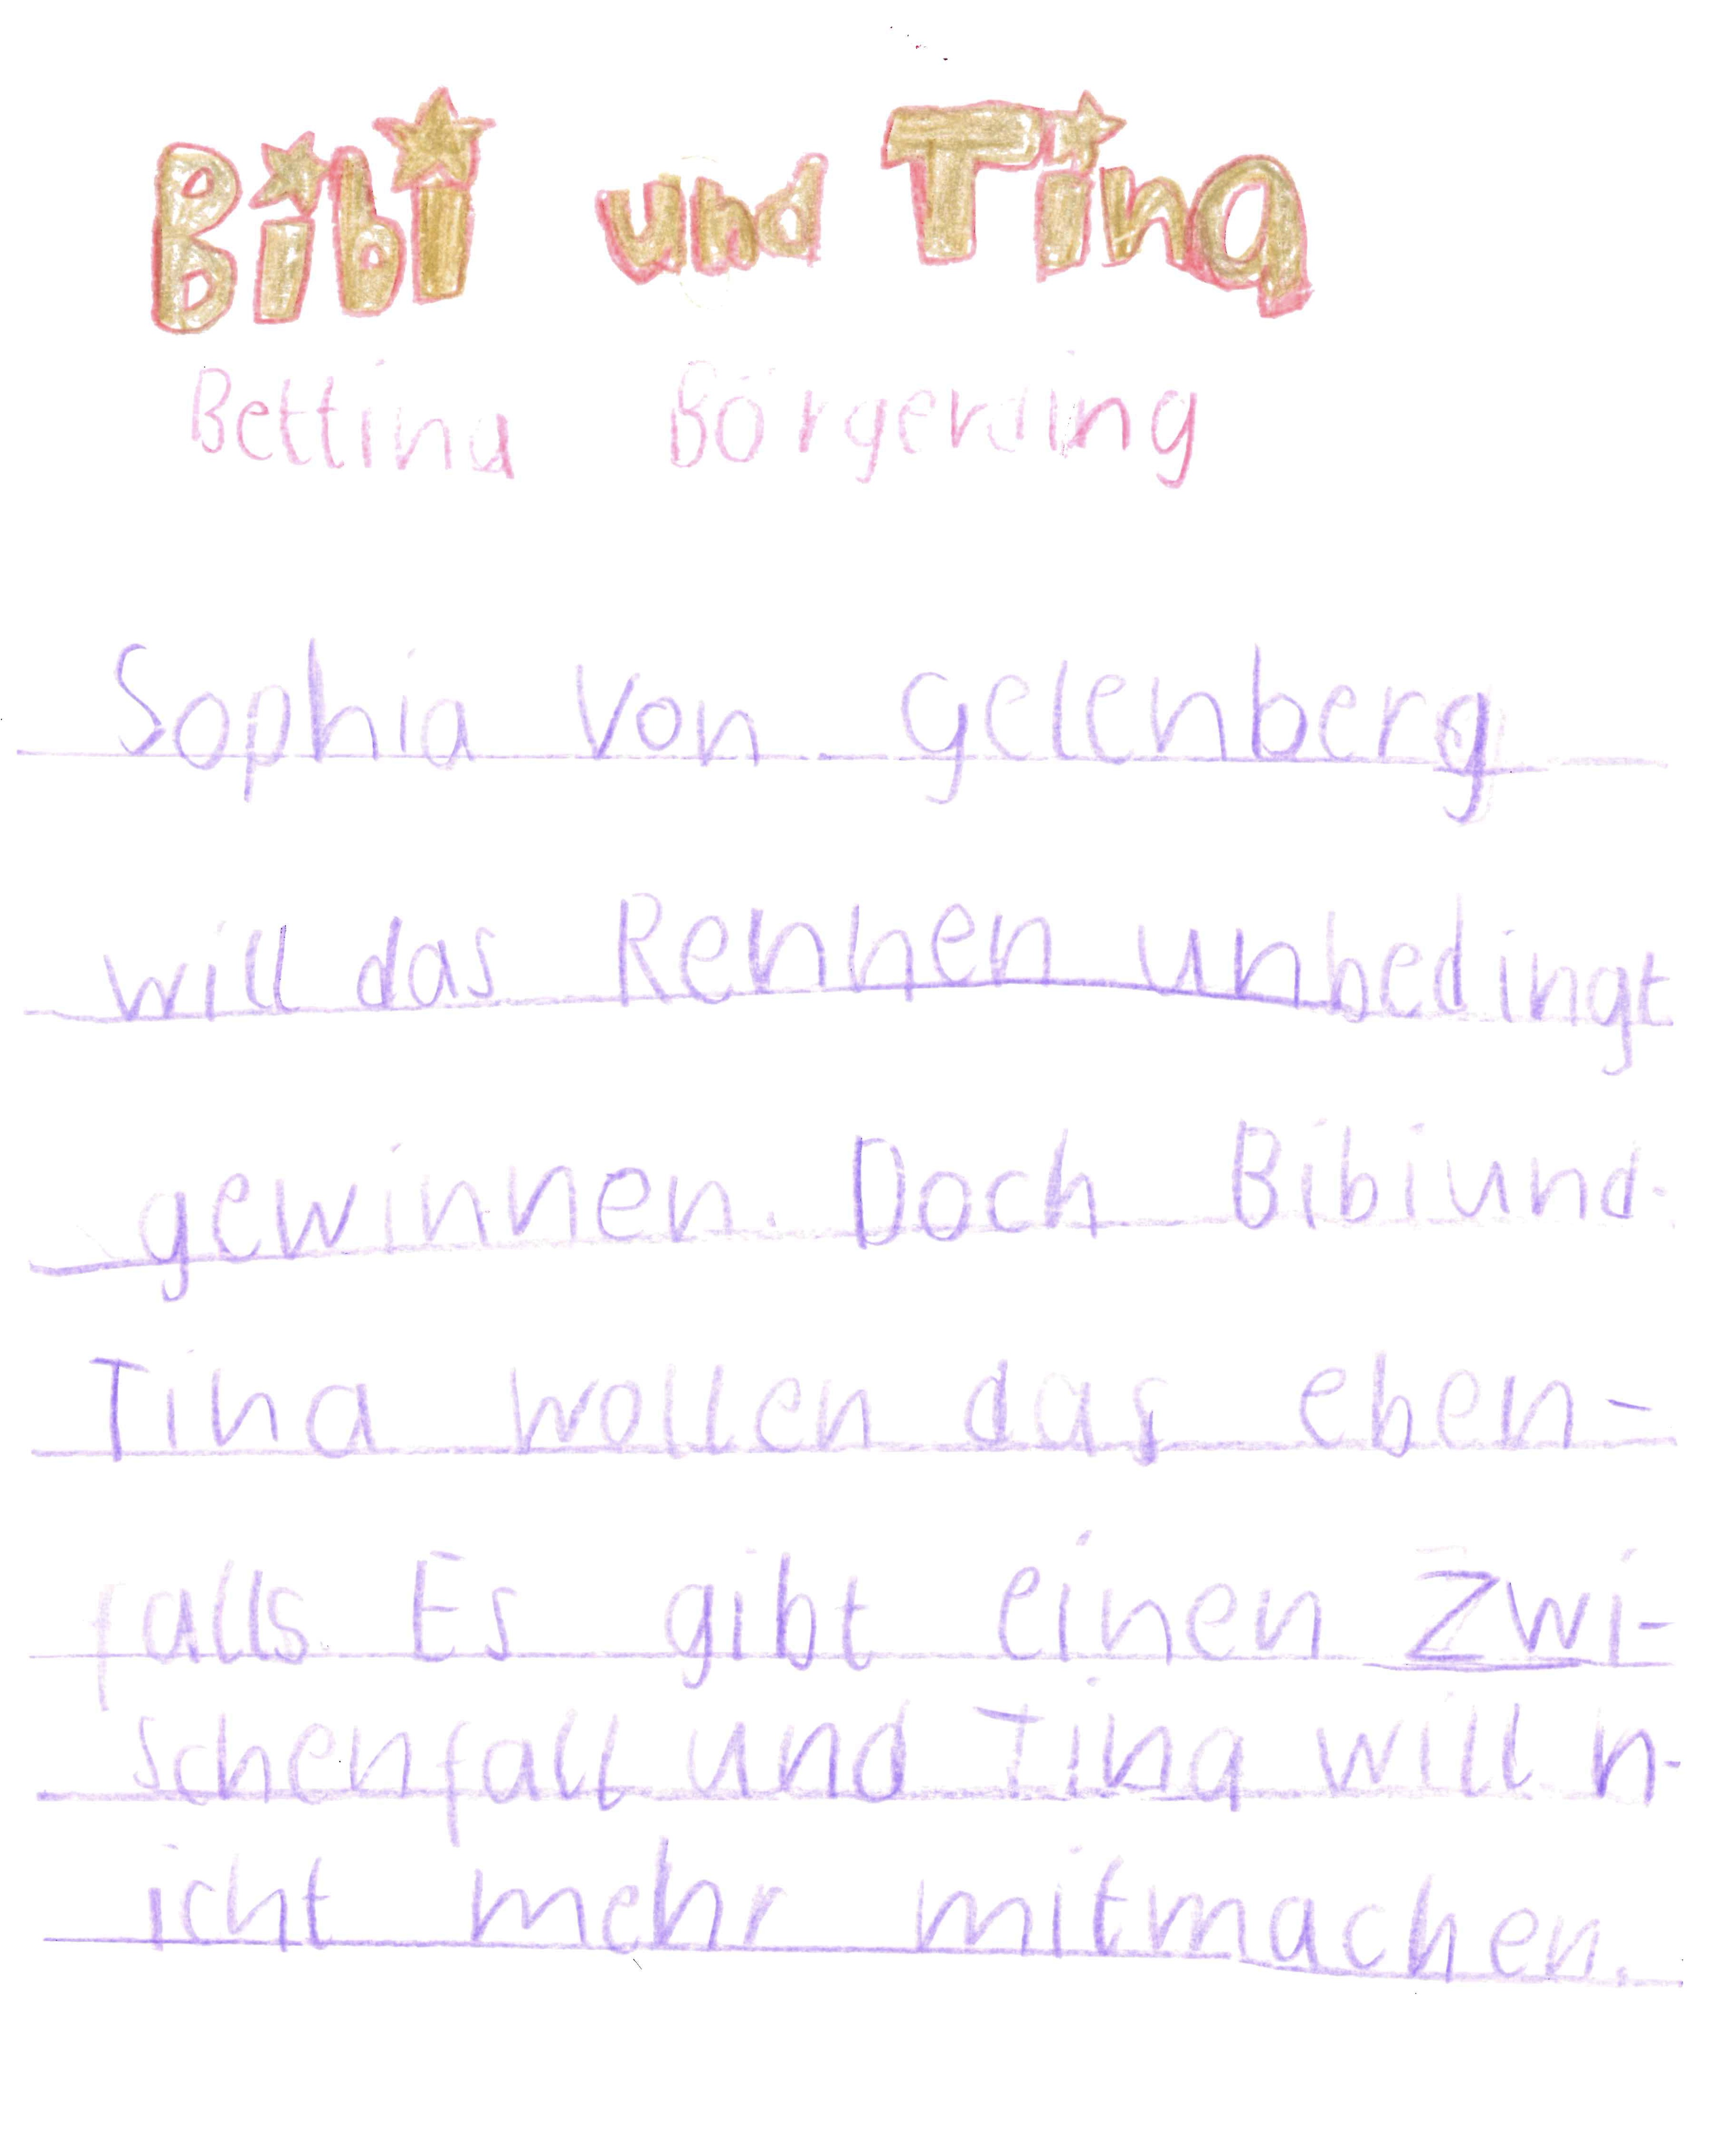 Bibi und Tina
Bettina Börgerding
Sophia von gelenberg
will das Rennen unbedingt
gewinnen. Doch Bibi und
Tina wollen das eben-
falls. Es gibt einen Zwi-
schenfall und Tina will n-
icht mehr mitmachen.